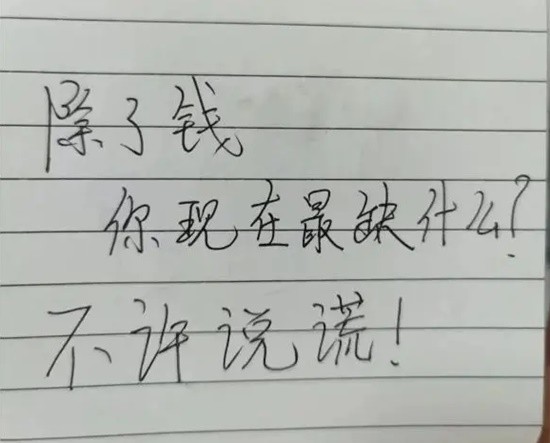 除了钱
你现在最缺什么?
不许说谎!